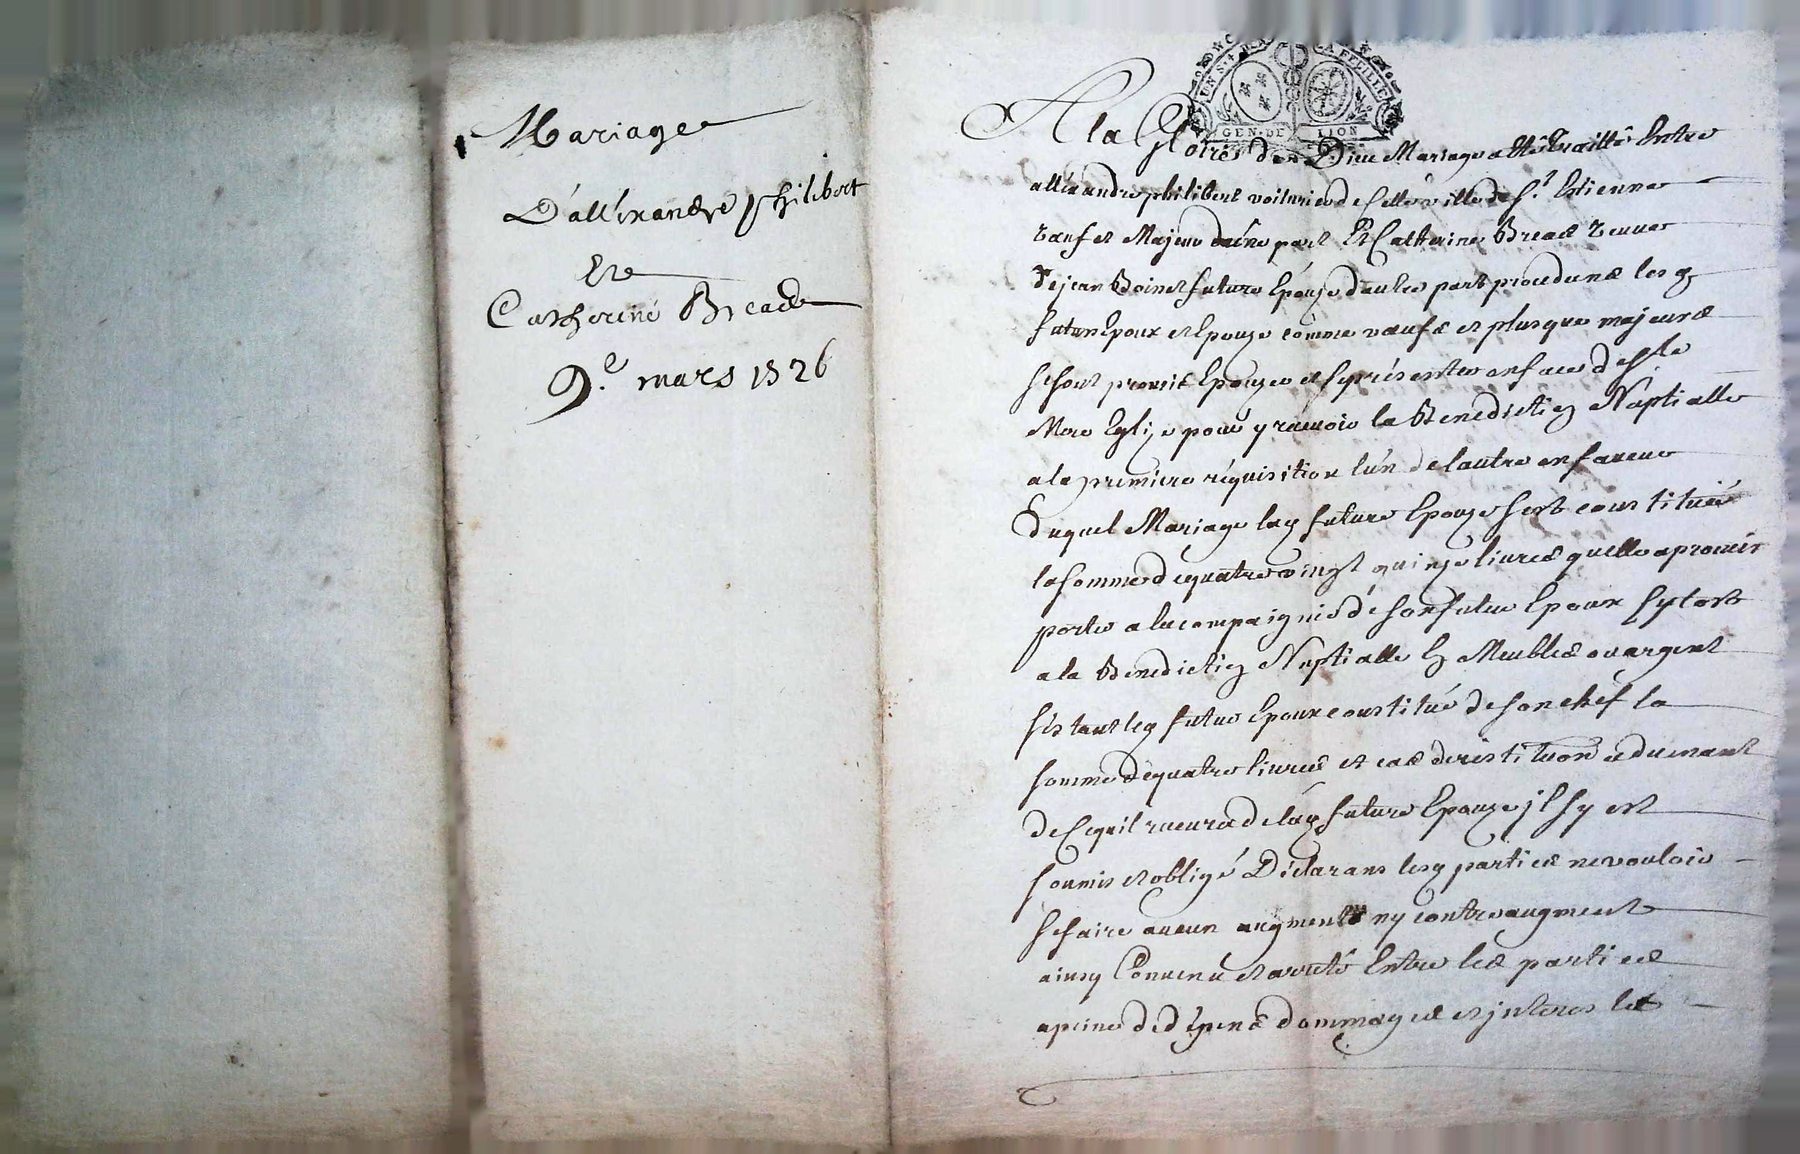 Mariage
D'alléxandre philibert
Et
Catherine Breade
9.e mars 1726
UN S. 4 D. LA FEUILLE
GEN. DE LION
A la Gloire de Dieu Mariage a été traitté Entre
alléxandre philibert voiturier de cette ville de St. Estienne
vœuf et Majeur d'une part Et Catherine Breade veuve
de jean Boinet future Epouze d'autre part procedunts les qz
futur Epoux et Epouze comme vœufs et plus que majeurs
se sont promis Epouzer et se présenter en face de ste
Mere Eglize pour y recevoir la Benediction Nuptialle
a la premiere réquisition l'un de l'autre en faveur
Duquel Mariage lad future Epouze s'est constituée
la somme de quatre vingt quinze livres quelle a promis
porter a la compaignie de son futur Epoux sytost
la Benediction Nuptialle En Meubles ou argent
s'estant led futur Epoux constitué de son chéf la
somme de quatre livres et cas de restitution advenant
de ce quil recevra de lad future Epouze jl sy est
soumis et obligé Déclarans lesd parties ne vouloir
se faire aucun augment ny contreaugment
ainsy Convenu et arreté Entre les parties
a peine de dépens dommages et jnterets les